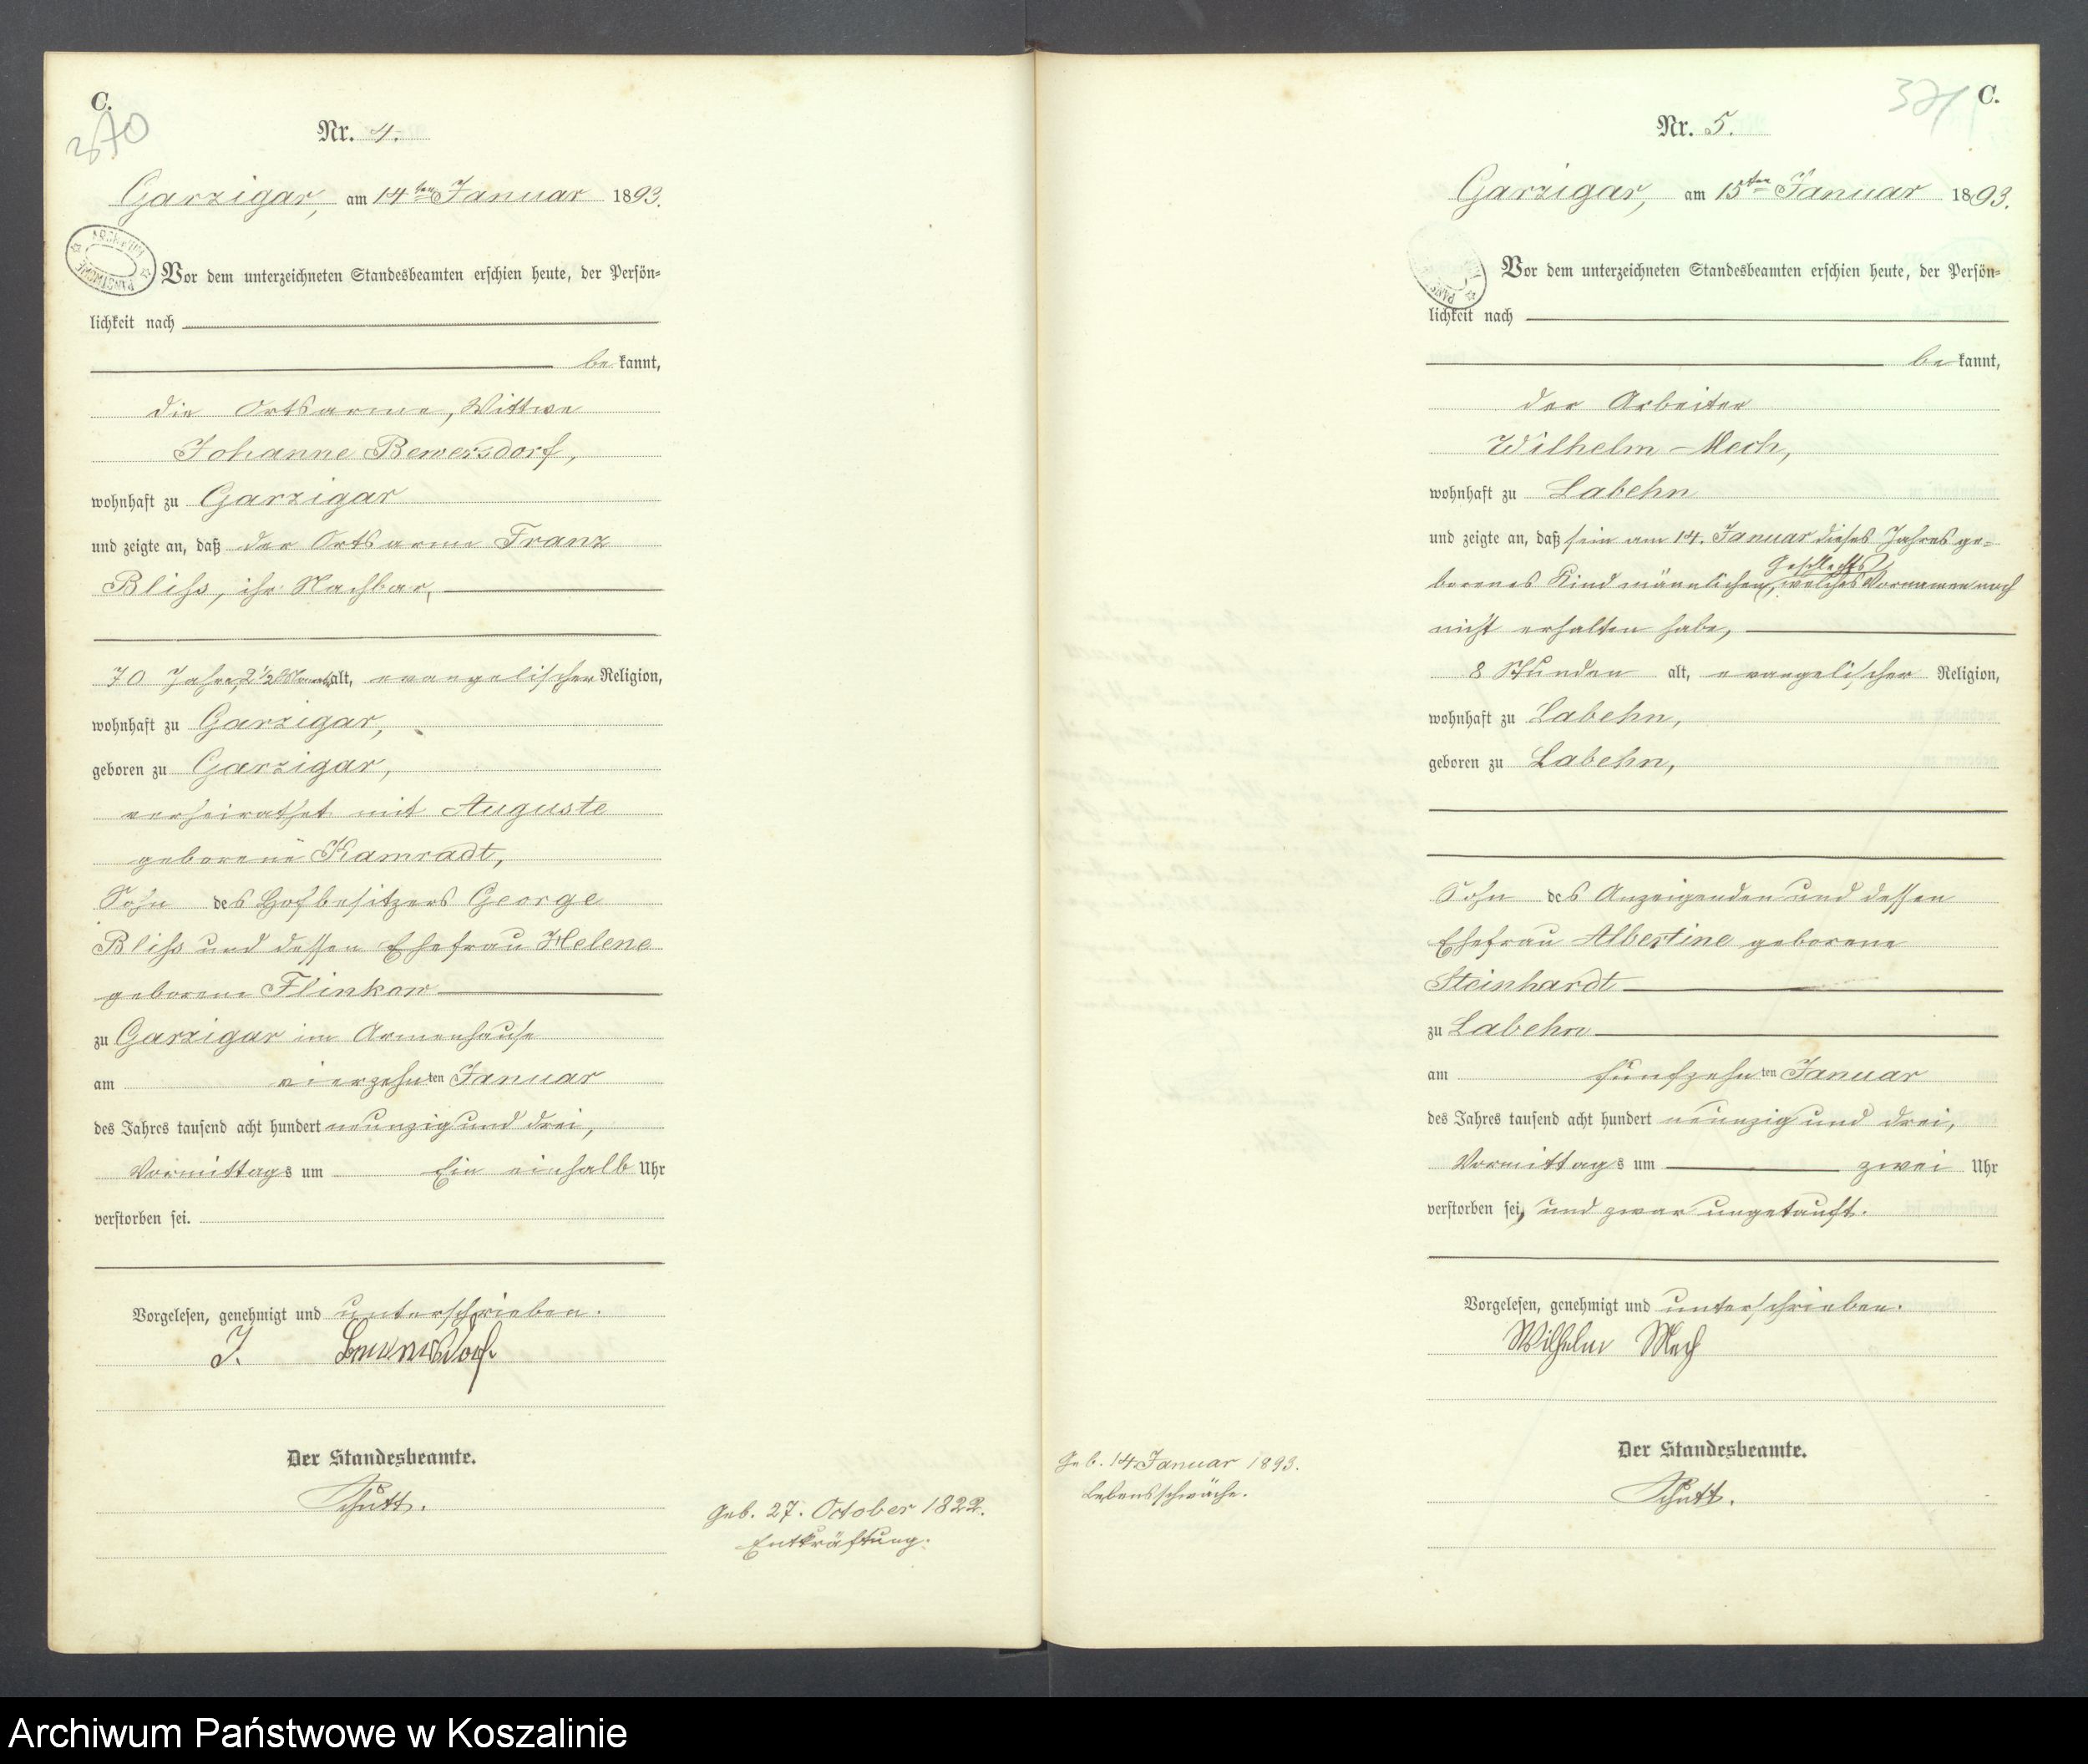 C.
370
Nr. 4.
Garzigar, am 14ten Januar 1893.
Vor dem unterzeichneten Standesbeamten erschien heute, der Persön=
lichkeit nach
bekannt,
die Ortsarme, Wittwe
Johanne Bewersdorf,
wohnhaft zu Garzigar
und zeigte an, daß der Ortsarme Franz
Bliss, ihr Nachbar,
70 Jahre, 2 1/2 Monat alt, evangelischer Religion,
wohnhaft zu Garzigar,
geboren zu Garzigar,
verheirathet mit Auguste
geborene Kamradt,
Sohn des Hofbesitzers George
Bliss und dessen Ehefrau Helene
geborene Flinkow
zu Garzigar im Armenhause
am vierzehnten Januar
des Jahres tausend acht hundert neunzig und drei,
Vormittags um Ein einhalb Uhr
verstorben sei.
Vorgelesen, genehmigt und unterschrieben.
J. Bewersdorf
Der Standesbeamte.
Schütt.
Geb. 27. October 1822.
Entkräftung.
371
C.
Nr. 5.
Garzigar, am 15ten Januar 1893.
Vor dem unterzeichneten Standesbeamten erschien heute, der Persön=
lichkeit nach
bekannt,
der Arbeiter
Wilhelm Mech,
wohnhaft zu Labehn
und zeigte an, daß sein am 14. Januar dieses Jahres ge=
borenes Kind männlichen Geschlechts, welches Vornamen noch
nicht erhalten habe,
8 Stunden alt, evangelischer Religion,
wohnhaft zu Labehn,
geboren zu Labehn,
Sohn des Anzeigenden und dessen
Ehefrau Albertine geborene
Steinhardt
zu Labehn
am fünfzehnten Januar
des Jahres tausend acht hundert neunzig und drei,
Vormittags um zwei Uhr
verstorben sei, und zwar ungetauft.
Vorgelesen, genehmigt und unterschrieben.
Wilhelm Mech
Der Standesbeamte.
Schütt.
Geb. 14 Januar 1893.
Lebensschwäche.
Archiwum Państwowe w Koszalinie